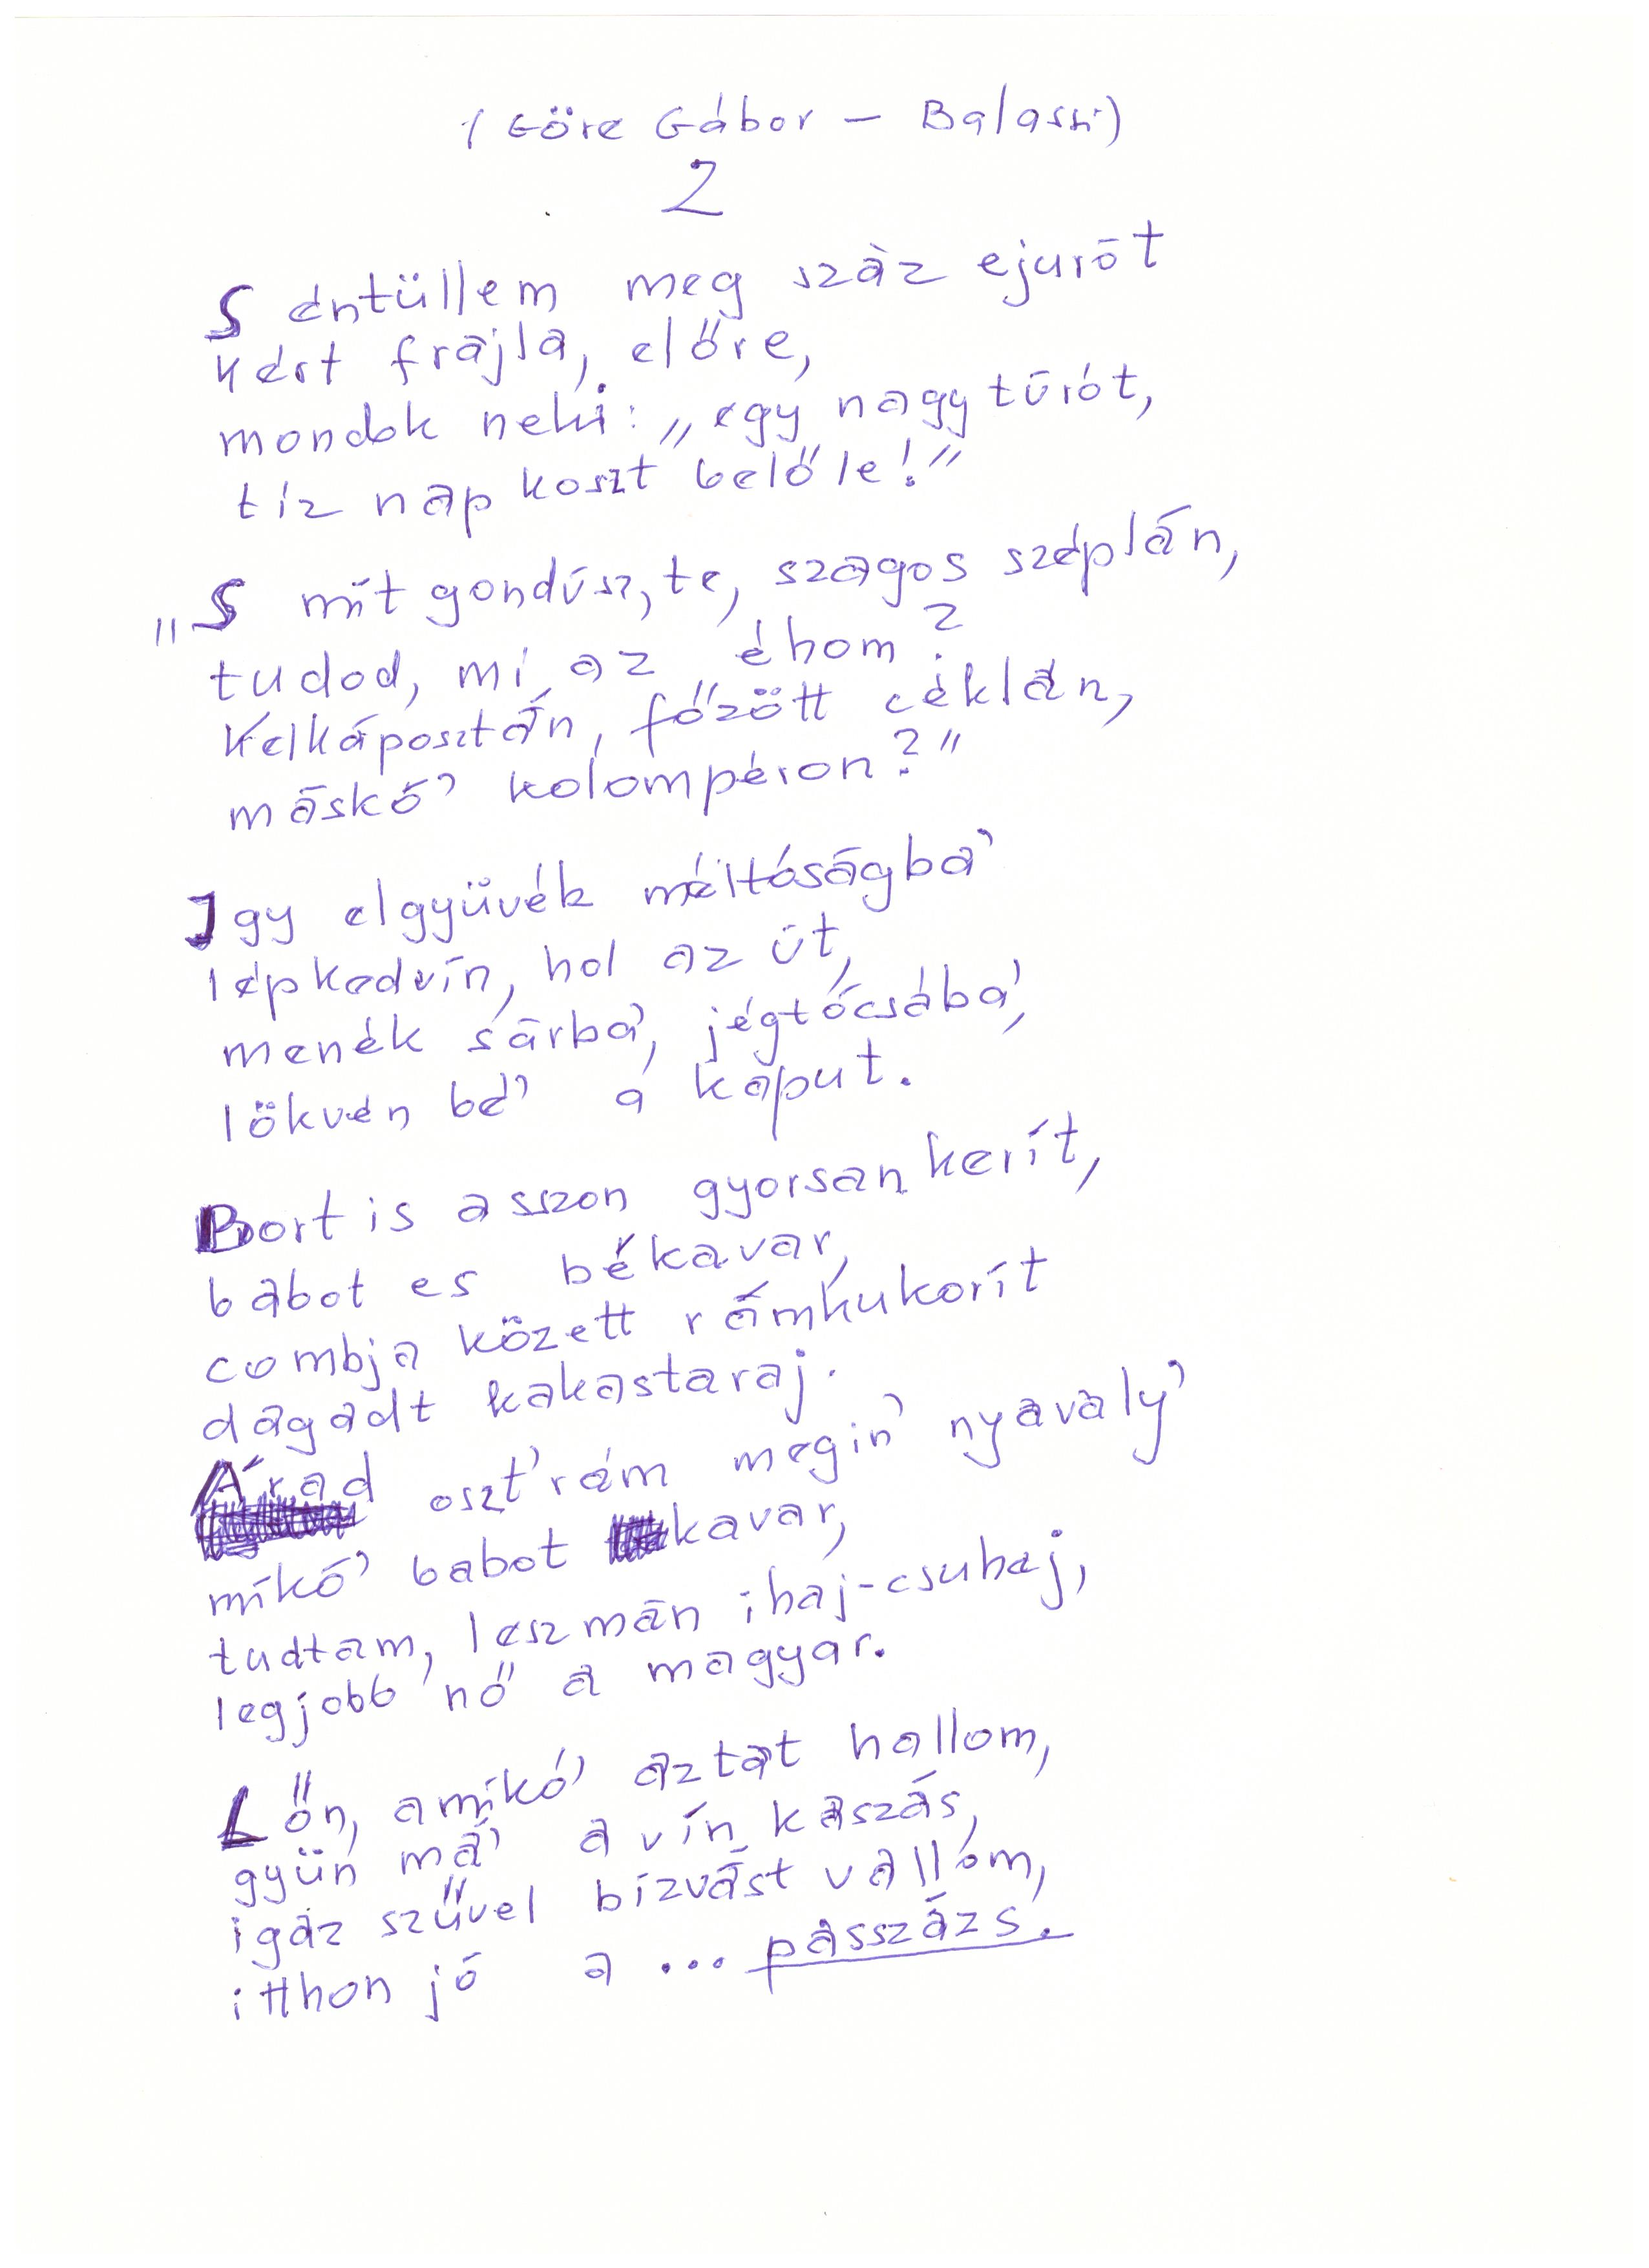 (Göre Gábor — Balassi)
2
S éntüllem meg száz ejurót
kért frájla, előre,
mondok neki: „egy nagy túrót,
tíz nap koszt belőle!"
„S mit gondúsz, te, szagos széplán,
tudod, mi az éhom?
Kelkáposztán, főzött céklán,
máskó' kolompéron?"
Igy elgyüvék méltóságba'
lépkedvín, hol az út,
menék sárba', jégtócsába',
lökvén bé' a kaput.
Bort is asszon gyorsan kerít,
babot es békavar,
combja között rámkukorít
dagadt kakastaraj.
Árad oszt' rám megin' nyavaly'
mikó' babot kavar,
tudtam, lesz mán ihaj-csuhaj,
legjobb nő a magyar.
Lőn, amikó' aztat hallom,
gyün má' a vín kaszás,
igaz szűvel bízvást vallom,
itthon jó a ... passzázs.